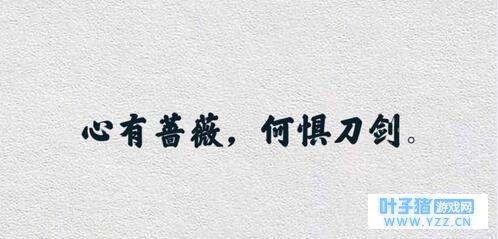 心有蔷薇，何惧刀剑。
叶子猪游戏网
www.YZZ.CN